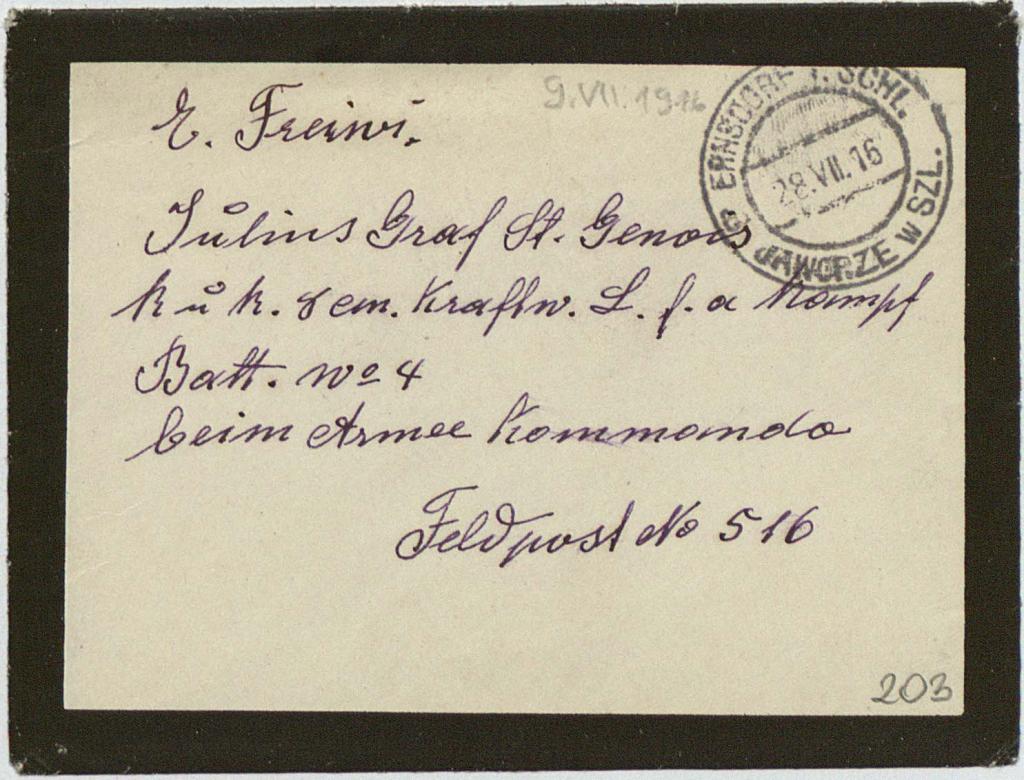 9.VII.1916
E. Freiwi.
ERNSDORF i. SCHL.
28.VII.16
JAWORZE W SZL.
Julius Graf St. Genois
k u k. Kraftw. L. f. a Kampf
Batt. No 4
beim Armee Kommando
Feldpost No 516
203